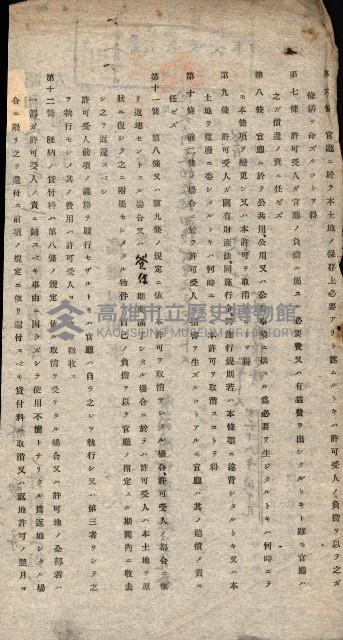 第六條 官廳ニ於テ本土地ノ保存上必要アリト認ムルトキハ許可受人ノ負擔ヲ以テ之ガ
修繕ヲ命ズルコトヲ得
第七條 許可受人ガ官廳ノ負擔ニ屬スル必要費又ハ有益費ヲ出シタルトキト雖モ官廳ハ
之ガ償還ノ責ニ任ゼズ
第八條 官廳ニ於テ公共用、公用又ハ公益事業ニ供スル爲必要ヲ生ジタルトキハ何時ニテ
モ本條項ヲ變更シ又ハ本許可ヲ取消スコトヲ得
第九條 許可受人ガ國有財産法同施行令同施行規則若ハ本條項ニ違背シタルトキ又ハ本
土地ヲ荒廢ニ委シタルトキハ何時ニテモ本許可ヲ取消スコトヲ得
第十條 前二條ノ場合ニ於テ許可受人ニ損害ヲ生ズルコトアルモ官廳ハ其ノ賠償ノ責ニ
任ゼズ
第十一條 第八條又ハ第九條ノ規定ニ依リ本許可ヲ取消サレタル場合、許可受人ノ都合ニ依
リ返地セントスル場合又ハ 期間滿了シタル場合ニ於テハ許可受人ハ本土地ヲ原
狀ニ復シ之ニ附屬セシメタル物件ハ自己ノ負擔ヲ以テ官廳ノ指定スル期間內ニ收去
シ之ヲ返還スベシ
許可受人前項ノ義務ヲ履行セザルトキハ官廳ハ自ラ之レヲ執行シ又ハ第三者ヲシテ之
ヲ執行セシメ其ノ費用ハ許可受人ヨリ徵收ス
第十二條 旣納ノ貸付料ハ第八條ノ規定ニ依リ取消ヲ受ケタル場合又ハ許可地ノ全部若ハ
一部ガ許可受人ノ責ニ歸スベキ事由ニ因ラズシテ使用不能トナリタル爲返地シタル場
合ニ限リ之ヲ還付ス前項ノ規定ニ依リ還付スベキ貸付料ハ取消又ハ返地許可ノ翌月ヨ
高雄市立歷史博物館
KAOHSIUNG MUSEUM OF HISTORY